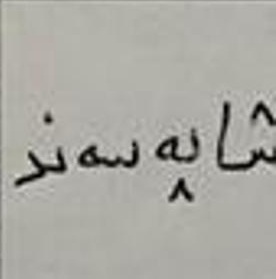 شاپەسەند